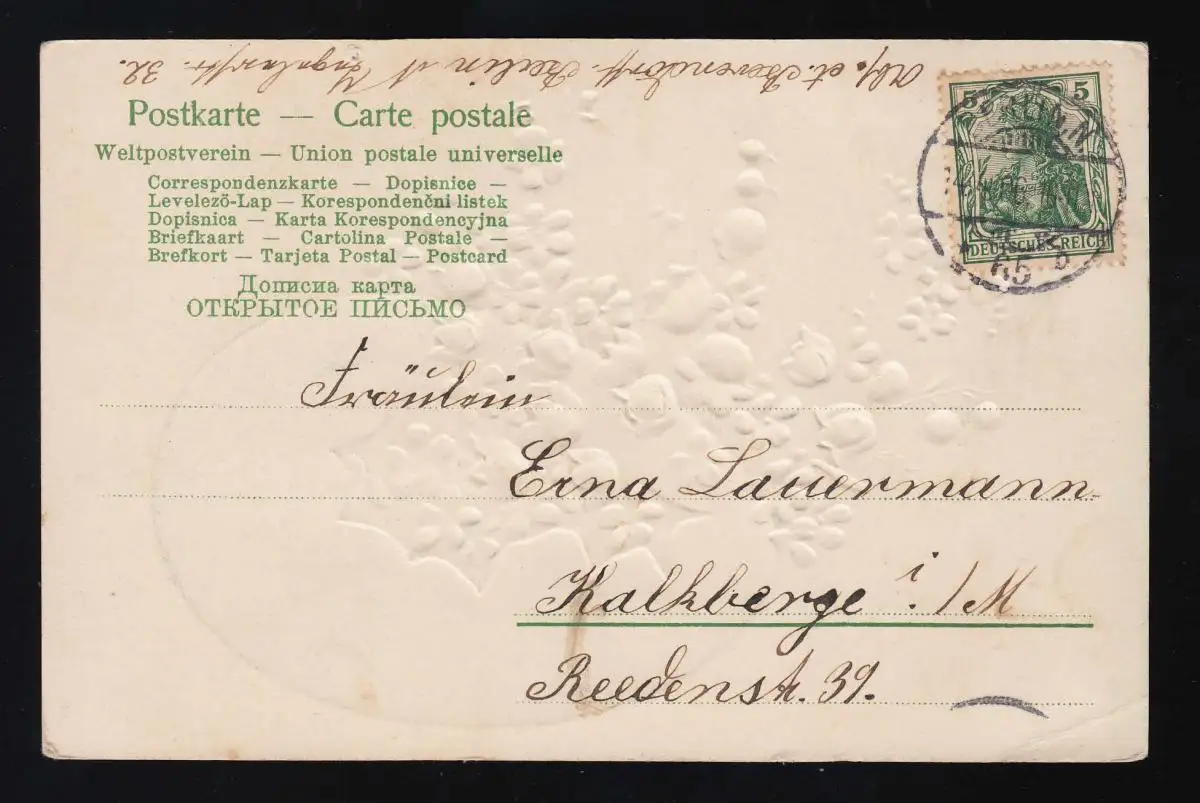 Abs. A. Bevendorff. Berlin N
32.
Postkarte — Carte postale
Weltpostverein — Union postale universelle
Correspondenzkarte — Dopisnice —
Levelező-Lap — Korespondenčni listek
Dopisnica — Karta Korespondencyjna
Briefkaart — Cartolina Postale —
Brefkort — Tarjeta Postal — Postcard
Дописиа карта
ОТКРЫТОЕ ПИСЬМО
5 5
DEUTSCHES REICH
BERLIN N
65 b
Fräulein
Erna Lauermann
Kalkberge i./M
Reedenstr. 39.